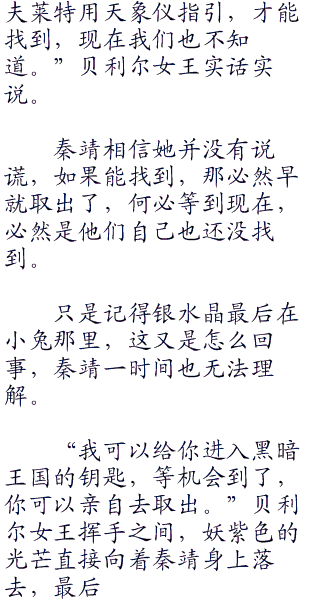 夫莱特用天象仪指引，才能
找到，现在我们也不知
道。”贝利尔女王实话实
说。
秦靖相信她并没有说
谎，如果能找到，那必然早
就取出了，何必等到现在，
必然是他们自己也还没找
到。
只是记得银水晶最后在
小兔那里，这又是怎么回
事，秦靖一时间也无法理
解。
“我可以给你进入黑暗
王国的钥匙，等机会到了，
你可以亲自去取出。”贝利
尔女王挥手之间，妖紫色的
光芒直接向着秦靖身上落
去，最后